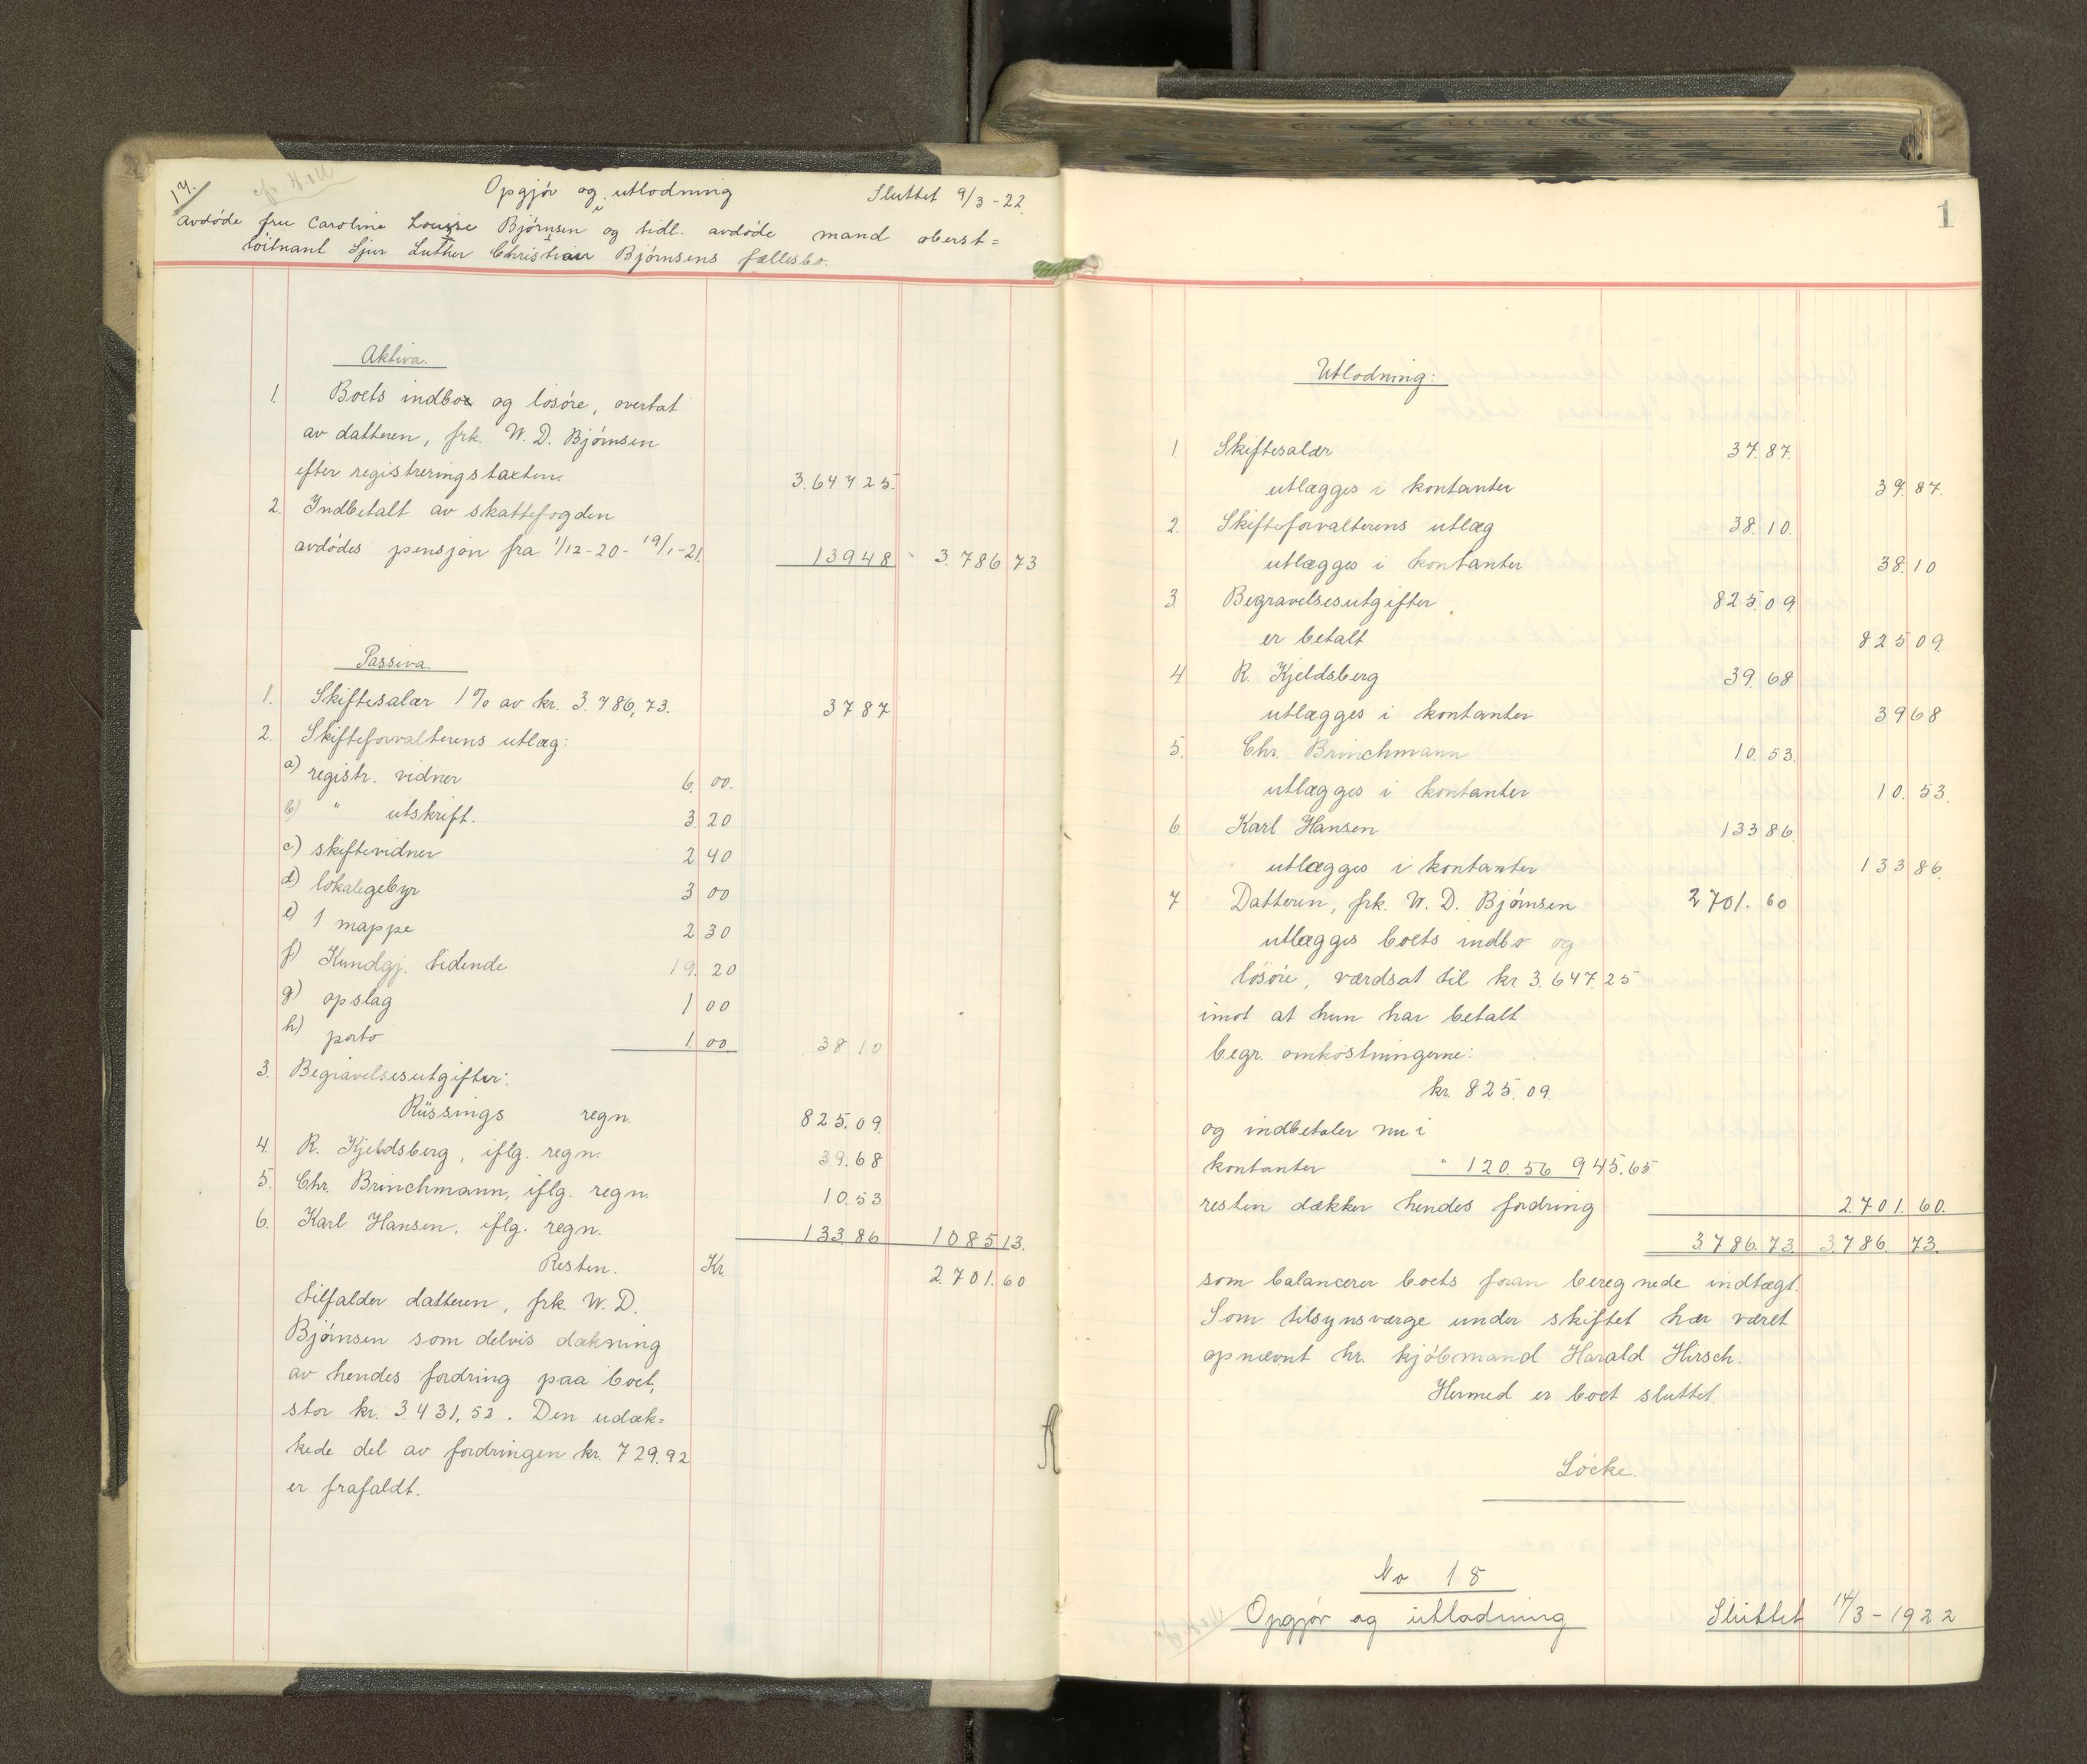 17.
Opgjør og utlodning Sluttet 9/3-22.
i
avdøde fru Caroline Louise Bjørnsen og tidl. avdøde mand oberst=
løitnant Sjur Luther Christian Bjørnsens fællesbo.
Aktiva.
1. Boets indbo og løsøre, overtat
av datteren, frk. W. D. Bjørnsen
efter registreringstaxten. 3.647 25.
2. Indbetalt av skattefogden
avdødes pensjon fra 1/12-20 - 19/1-21. 139 48 3.786 73
Passiva.
1. Skiftesalær 1% av kr. 3.786,73. 37 87
2. Skifteforvalterens utlæg:
a) registr. vidner 6. 00.
b) " utskrift. 3 20
c) skiftevidner 2 40
d) lokalegebyr 3 00
e) 1 mappe 2 30
f) Kundgj. tidende 19. 20
g) opslag 1 00
h) porto 1. 00 38 10
3. Begravelsesutgifter:
Rüssings regn. 825.09.
4. R. Kjeldsberg, iflg. regn. 39.68
5. Chr. Brinchmann, iflg. regn. 10.53
6. Karl Hansen, iflg. regn. 133.86 1085 13.
Resten. Kr. 2.701.60
tilfalder datteren, frk. W. D.
Bjørnsen som delvis dækning
av hendes fordring paa boet,
stor kr. 3.431,52. Den udæk=
kede del av fordringen kr. 729.92
er frafaldt.
1
Utlodning:
1 Skiftesalær 37.87.
utlægges i kontanter 37.87.
2. Skifteforvalterens utlæg 38.10.
utlægges i kontanter 38.10
3. Begravelsesutgifter 825.09
er betalt 825 09.
4 R. Kjeldsberg 39.68
utlægges i kontanter 39 68
5. Chr. Brinchmann 10.53.
utlægges i kontanter 10.53.
6. Karl Hansen 133 86.
utlægges i kontanter 133 86.
7 Datteren, frk. W. D. Bjørnsen 2701. 60
utlægges boets indbo og
løsøre, værdsat til kr 3.647.25
imot at hun har betalt
begr. omkostningerne:
kr. 825.09.
og indbetaler nu i
kontanter " 120.56 945.65
resten dækker hendes fordring 2.701.60.
3.786.73. 3.786.73.
som balancerer boets foran beregnede indtægt.
Som tilsynsværge under skiftet har været
opnævnt hr. kjøbmand Harald Hirsch.
Hermed er boet sluttet.
Løcke.
No 18
Opgjør og utlodning Sluttet 14/3-1922